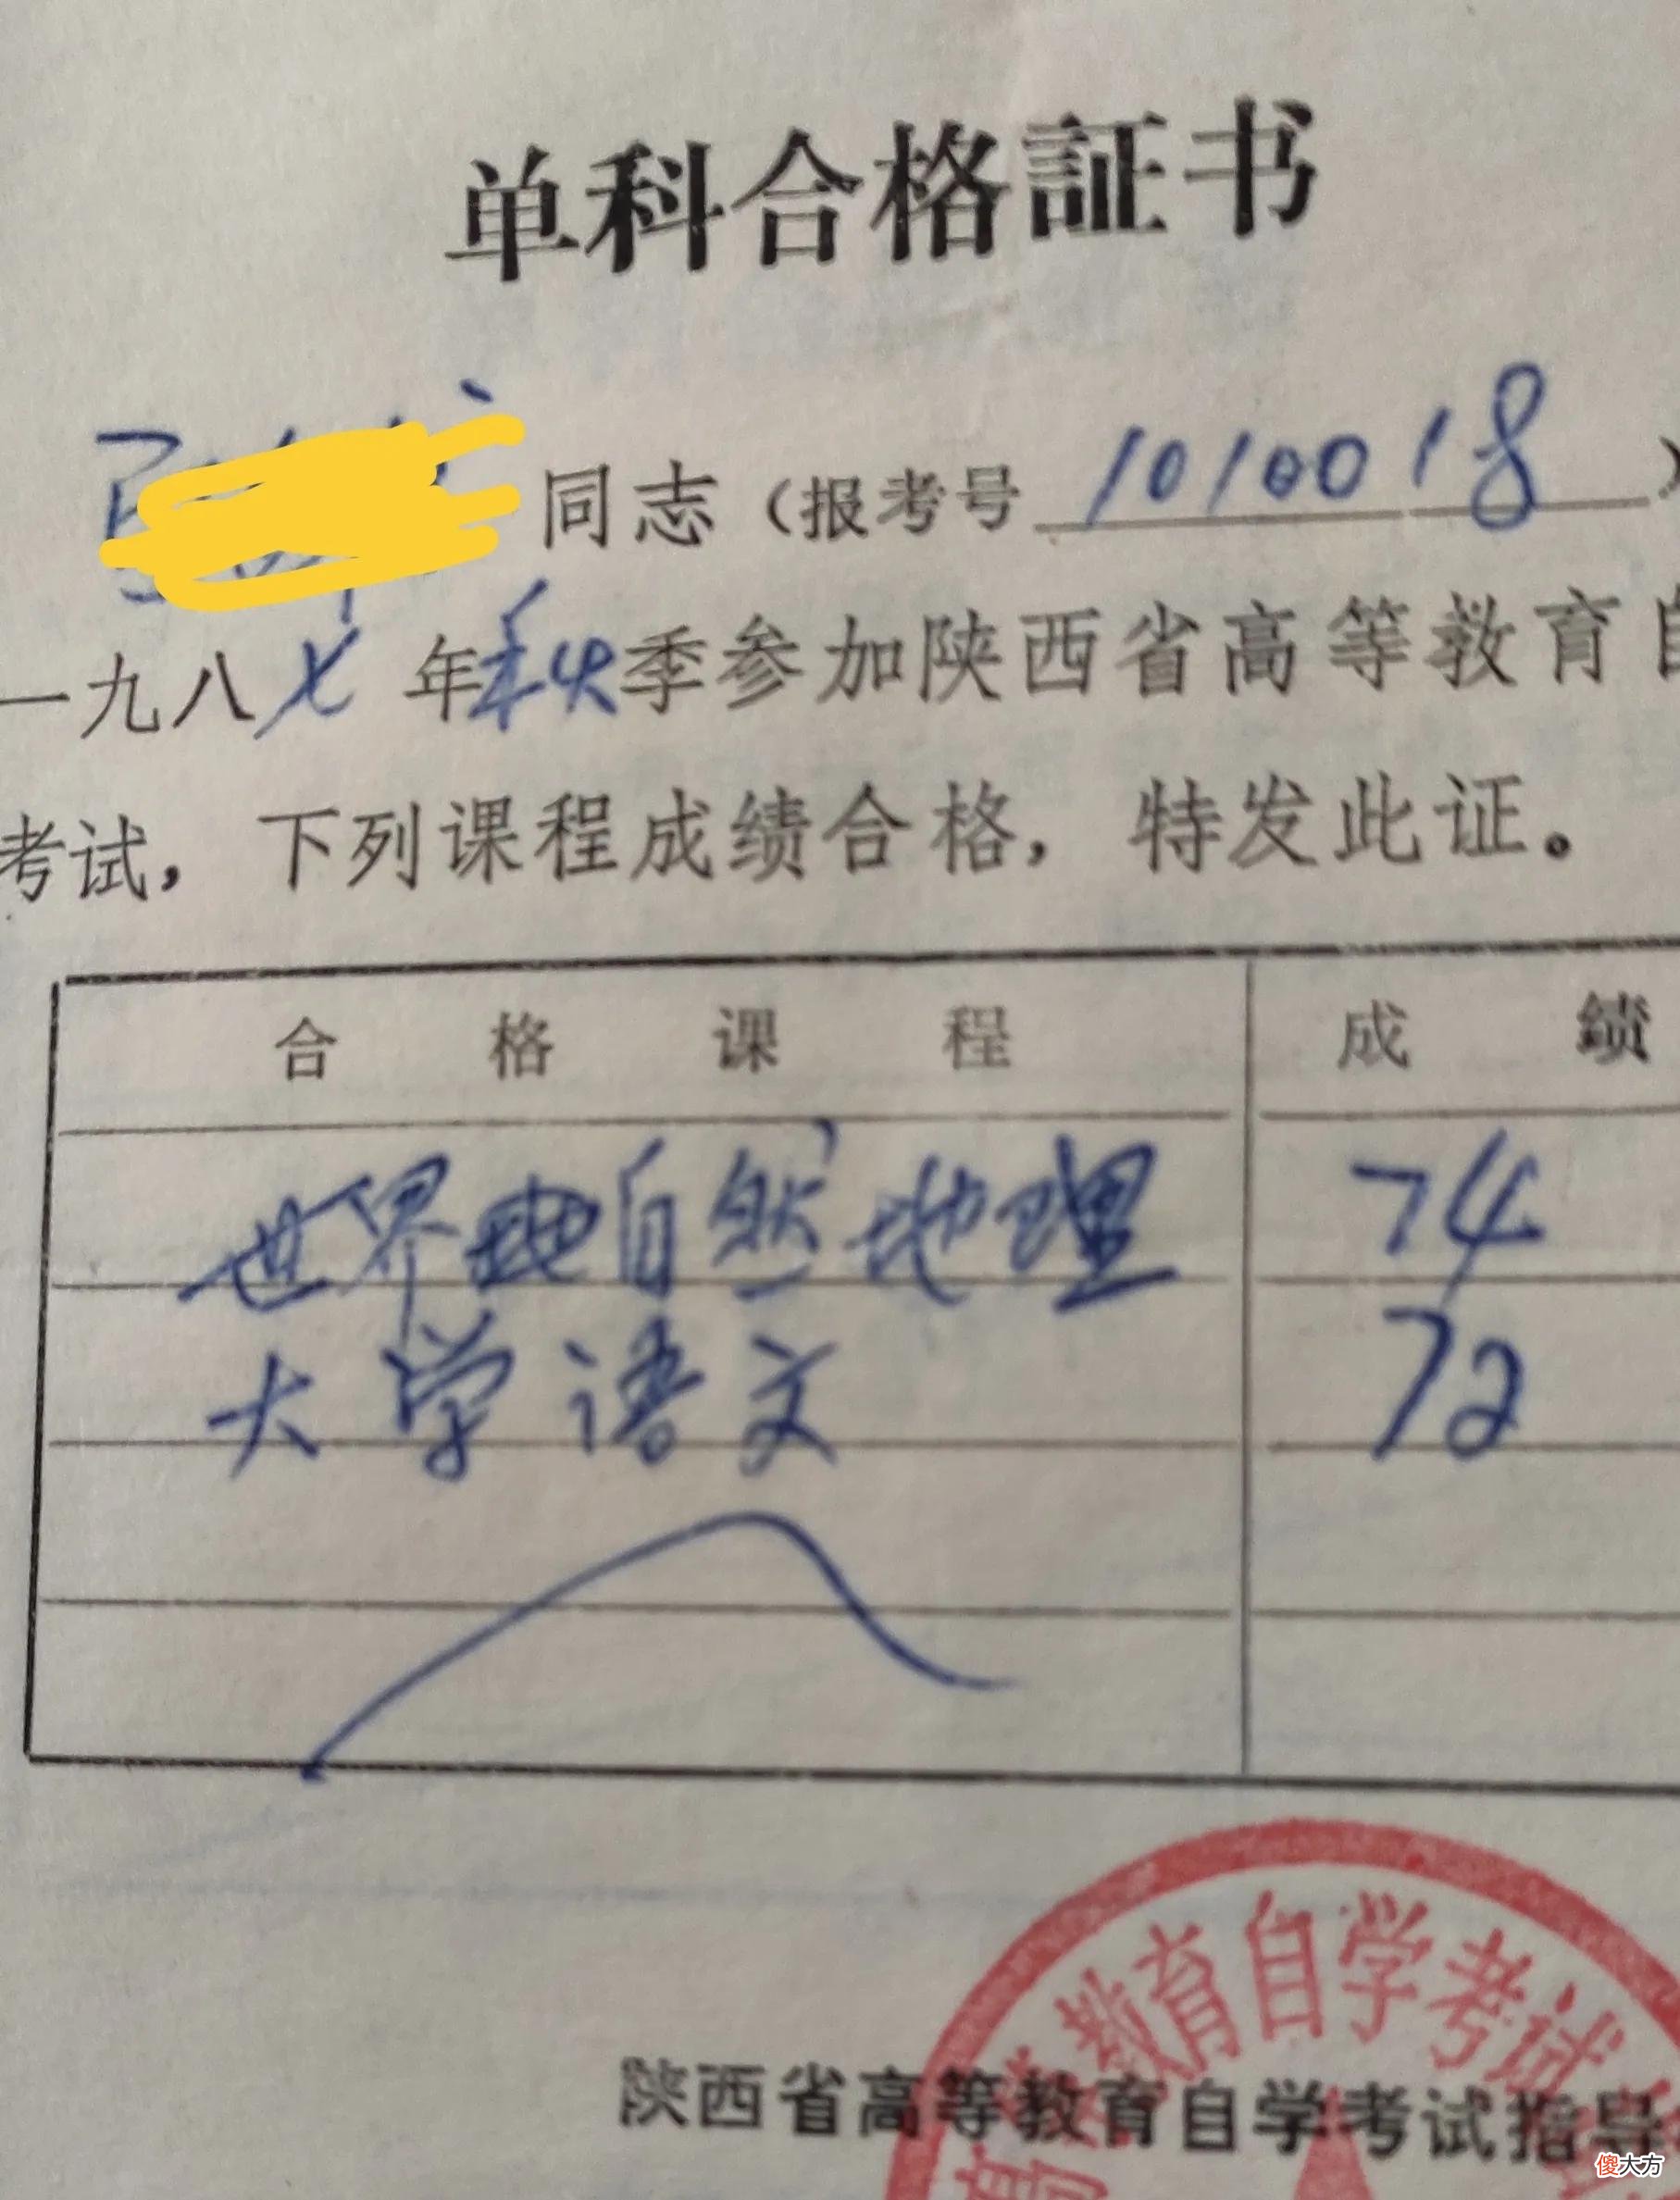 单科合格証书
同志（报考号 10100 18）
一九八七年秋季参加陕西省高等教育自
考试，下列课程成绩合格，特发此证。
合格课程 成绩
世界自然地理 74
大学语文 72
高等教育自学考试
陕西省高等教育自学考试指导
傻大方